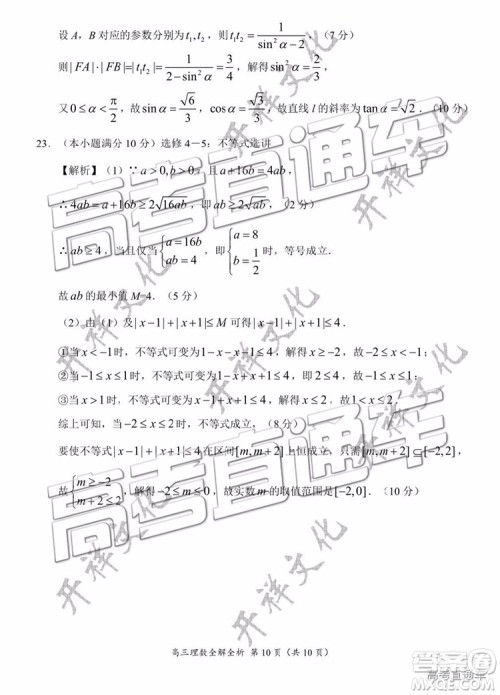 设 A，B 对应的参数分别为 t₁,t₂，则 t₁t₂ = 1/(sin²α－2)，（7 分）
则|FA|·|FB|=|t₁t₂|= 1/(2－sin²α) = 3/4，解得 sin²α = 2/3，
又 0≤α<π/2，故 sinα = √6/3，cosα = √3/3，故直线 l 的斜率为 tanα = √2．（10 分）
23．（本小题满分 10 分）选修 4－5：不等式选讲
【解析】（1）∵ a>0,b>0，且 a+16b=4ab，
∴ 4ab=a+16b≥2√16ab，即 ab≥2√ab，（2 分）
∴ ab≥4，当且仅当 {a=16b, ab=4，即 {a=8, b=1/2 时，等号成立．
故 ab 的最小值 M=4．（5 分）
（2）由（1）及|x－1|+|x+1|≤M 可得|x－1|+|x+1|≤4．
①当 x<－1 时，不等式可变为 1－x－x－1≤4，解得 x≥－2，故－2≤x<－1；
②当－1≤x≤1 时，不等式可变为 1－x+x+1≤4，即 2≤4，故－1≤x≤1；
③当 x>1 时，不等式可变为 x－1+x+1≤4，解得 x≤2，故 1<x≤2．
综上可知，当－2≤x≤2 时，不等式成立．（8 分）
要使不等式|x－1|+|x+1|≤4 在区间[m,m+2]上恒成立，只需[m,m+2]⊆[－2,2]，
故 {m≥－2, m+2≤2，解得－2≤m≤0，故实数 m 的取值范围是[－2,0]．（10 分）
高考直通车
开祥文化
高考直通车
开祥文化
高三理数全解全析 第 10 页（共 10 页）
高考直通车